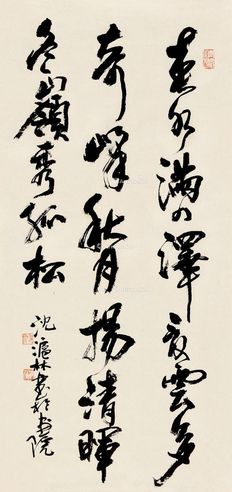 春水满四澤夏雲多
奇峰秋月揚清暉
冬嶺秀孤松
沈滬林書於書院